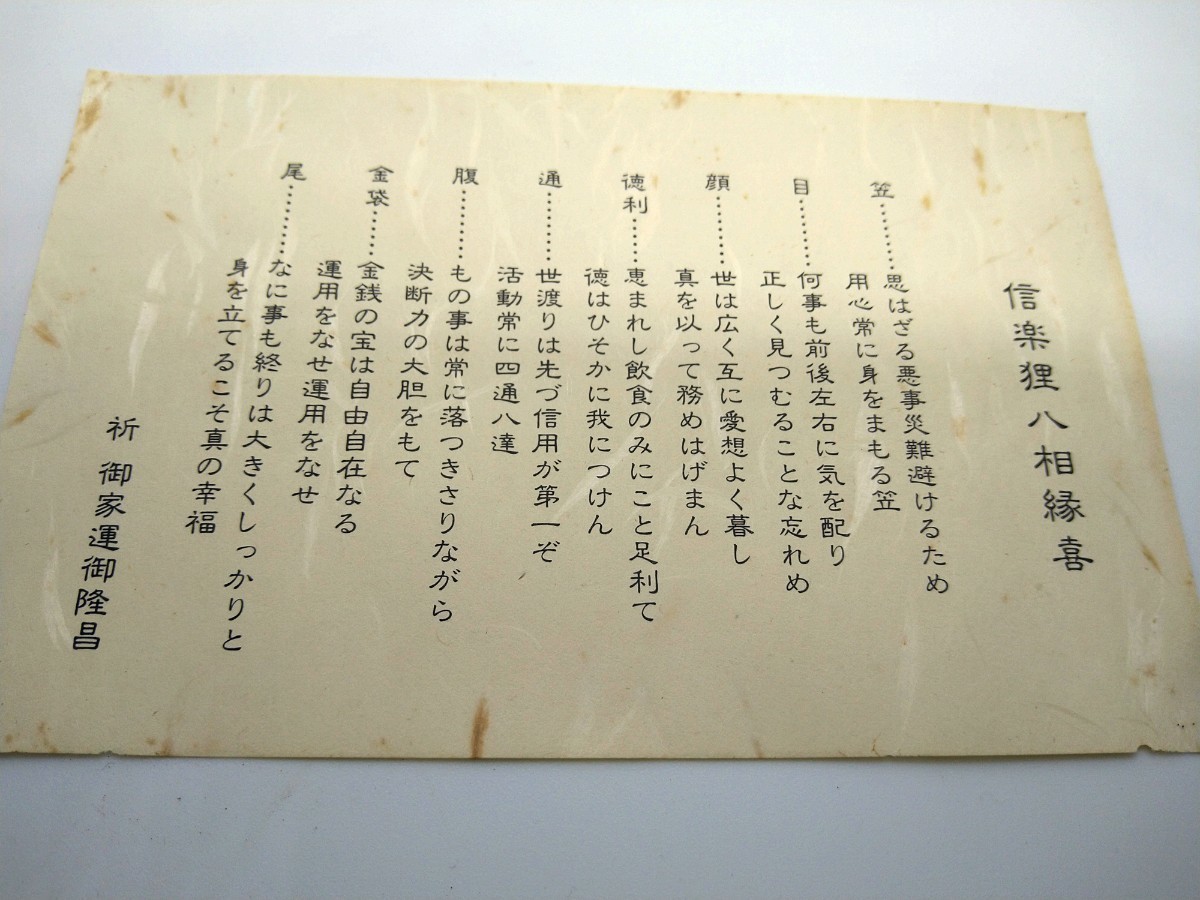 信楽狸八相縁喜
笠………思はざる悪事災難避けるため
用心常に身をまもる笠
目………何事も前後左右に気を配り
正しく見つむることな忘れめ
顔………世は広く互に愛想よく暮し
真を以って務めはげまん
徳利……恵まれし飲食のみにこと足利て
徳はひそかに我につけん
通………世渡りは先づ信用が第一ぞ
活動常に四通八達
腹………もの事は常に落つきさりながら
決断力の大胆をもて
金袋……金銭の宝は自由自在なる
運用をなせ運用をなせ
尾………なに事も終りは大きくしっかりと
身を立てるこそ真の幸福
祈 御家運御隆昌